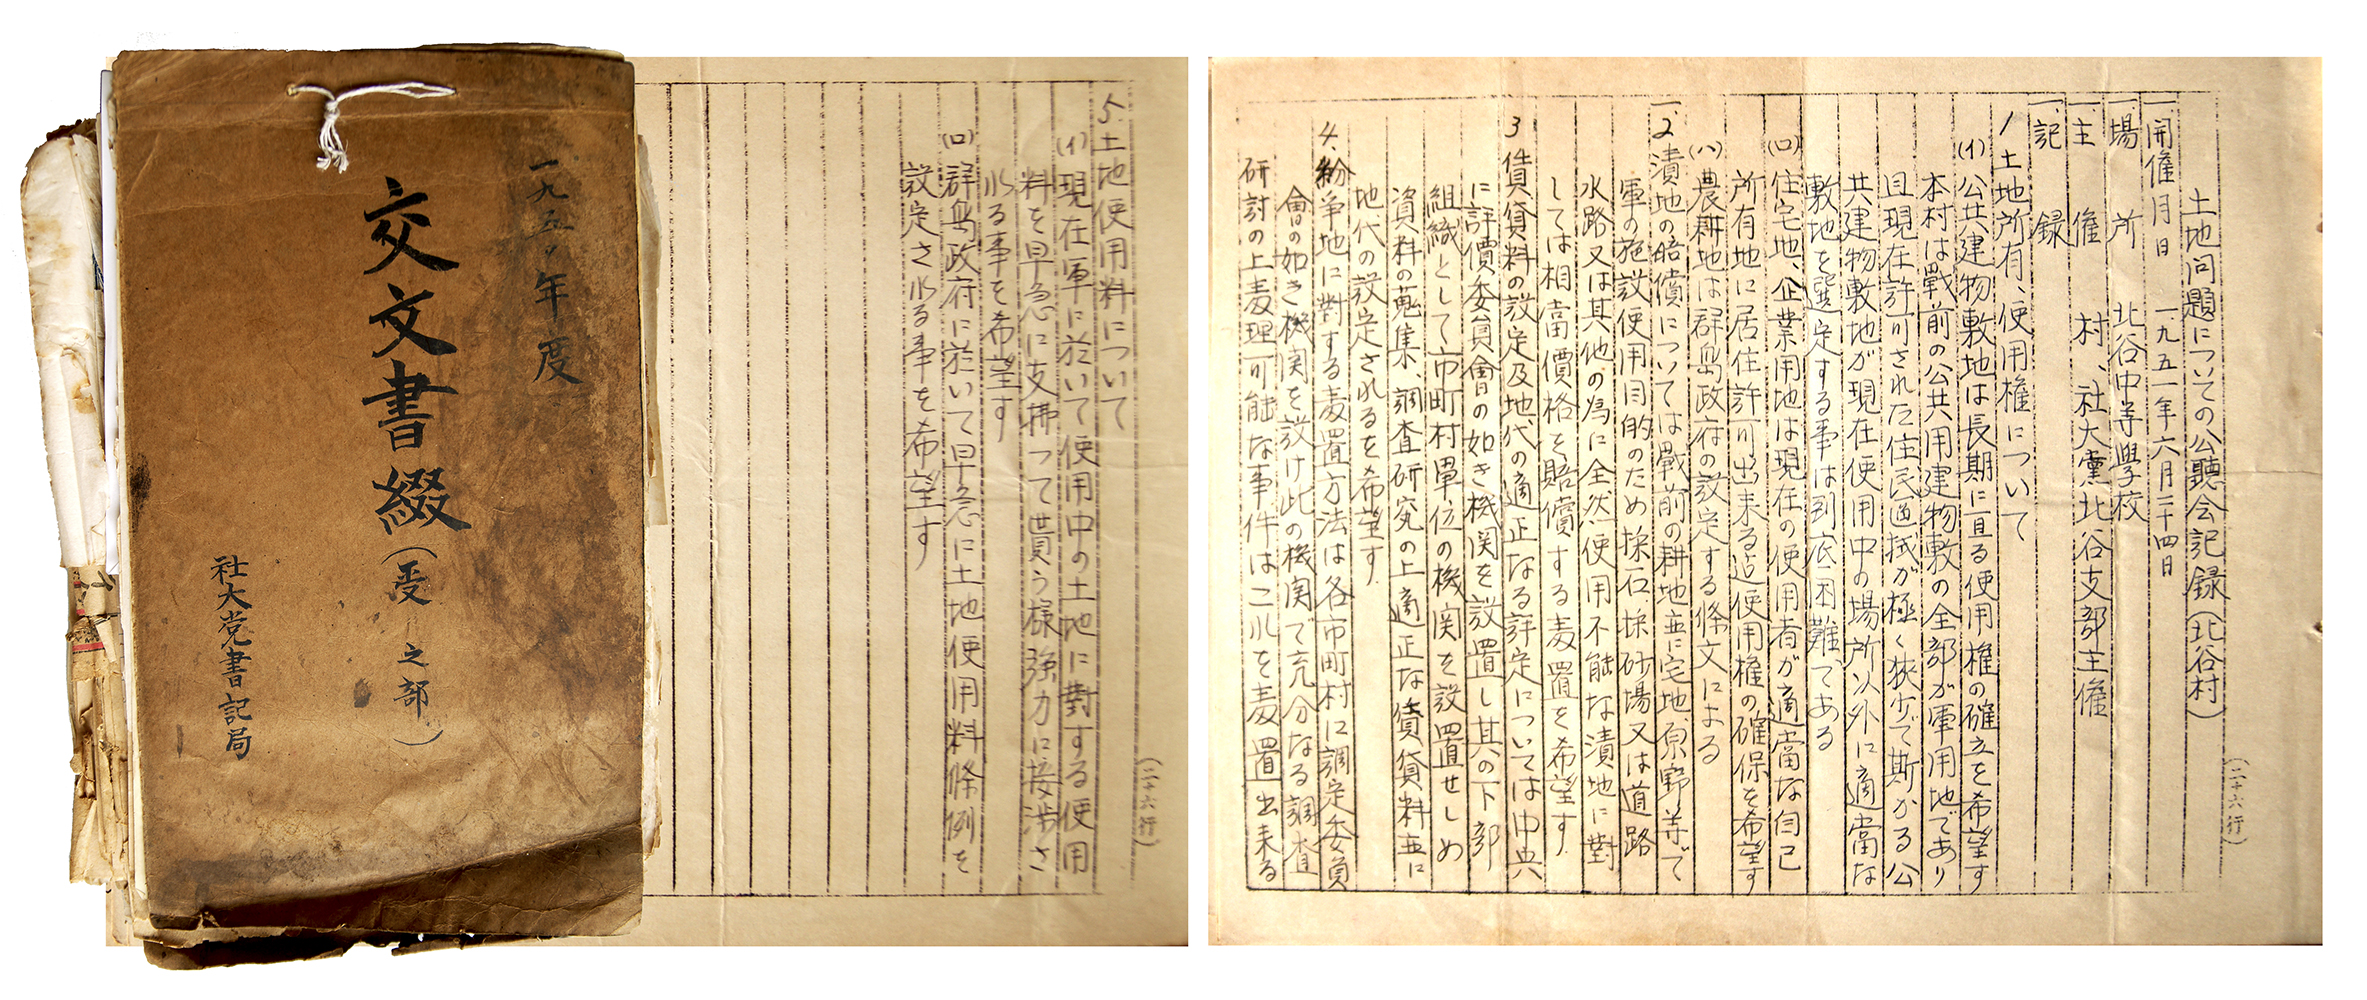 (二十六行)
土地问題についての公聽会記録(北谷村)
一開催月日 一九五一年六月二十四日
一場所 北谷中等學校
一主催 村、社大黨北谷支部主催
一、記録
1 土地所有、使用権について
(イ)公共建物敷地は長期に亘る使用権の確立を希望す
本村は戰前の公共用建物敷の全部が軍用地であり
且現在許可された住民區域が極く狹少で斯かる公
共建物敷地が現在使用中の場所以外に適當な
敷地を選定する事は到底困難である
(ロ)住宅地、企業用地は現在の使用者が適當な自己
所有地に居住許可出来る迠使用権の確保を希望す
(ハ)農耕地は群島政府の設定する條文による
2 潰地の賠償については戰前の耕地並に宅地、原野等で
軍の施設使用目的のため採石採砂場又は道路
水路又は其他の為に全然使用不能な潰地に對
しては相當價格を賠償する処置を希望す
3 賃貸料の設定及地代の適正なる評定については中央
に評價委員會の如き機関を設置し其の下部
組織として市町村單位の機関を設置せしめ
資料の蒐集、調査研究の上適正な賃貸料並に
地代の設定されるを希望す
4、紛争地に對する処置方法は各市町村に調定委員
會の如き機関を設け此の機関で充分なる調査
研討の上処理可能な事件はこれを処置出来る
(二十六行)
5.土地使用料について
(イ)現在軍に於いて使用中の土地に對する使用
料を早急に支拂って貰う様強力に接渉さ
れる事を希望す
(ロ)群島政府に於いて早急に土地使用料條例を
設定される事を希望す
一九五〇年度
交文書綴(受之部)
社大党書記局